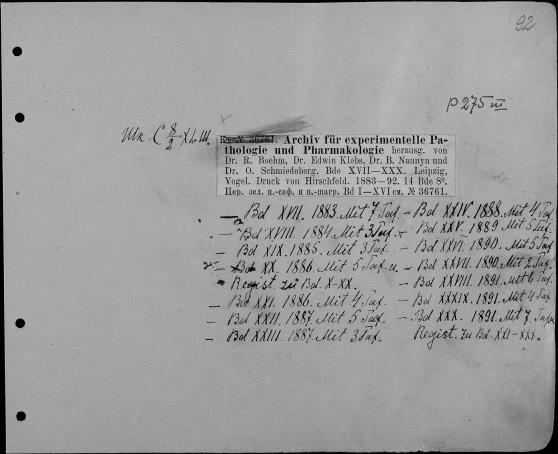 92
p 275 III
Шк. C 8/2 X. h. III.
Archiv für experimentelle Pa-
thologie und Pharmakologie herausg. von
Dr. R. Boehm, Dr. Edwin Klebs, Dr. B. Naunyn und
Dr. O. Schmiedeberg. Bde XVII—XXX. Leipzig,
Vogel. Druck von Hirschfeld. 1883—92. 14 Bde 8º.
Пер. зел. п.-саф. и п.-шагр. Bd I—XVI см. № 36761.
— Bd XVII. 1883. Mit 7 Taf.
— Bd XVIII. 1884. Mit 3 Taf.
— Bd XIX. 1885. Mit 3 Taf.
— Bd XX. 1886. Mit 5 Taf. u.
Regist. zu Bd. X-XX.
— Bd XXI. 1886. Mit 4 Taf.
— Bd XXII. 1887. Mit 5 Taf.
— Bd XXIII. 1887. Mit 3 Taf.
— Bd XXIV. 1888. Mit 4 Taf.
— Bd XXV. 1889. Mit 5 Taf.
— Bd XXVI. 1890. Mit 5 Taf.
— Bd XXVII. 1890. Mit 2 Taf.
— Bd XXVIII. 1891. Mit 6 Taf.
— Bd XXXIX. 1891. Mit 4 Taf.
— Bd XXX. 1891. Mit 7 Taf. u.
Regist. zu Bd. XXI-XXX.